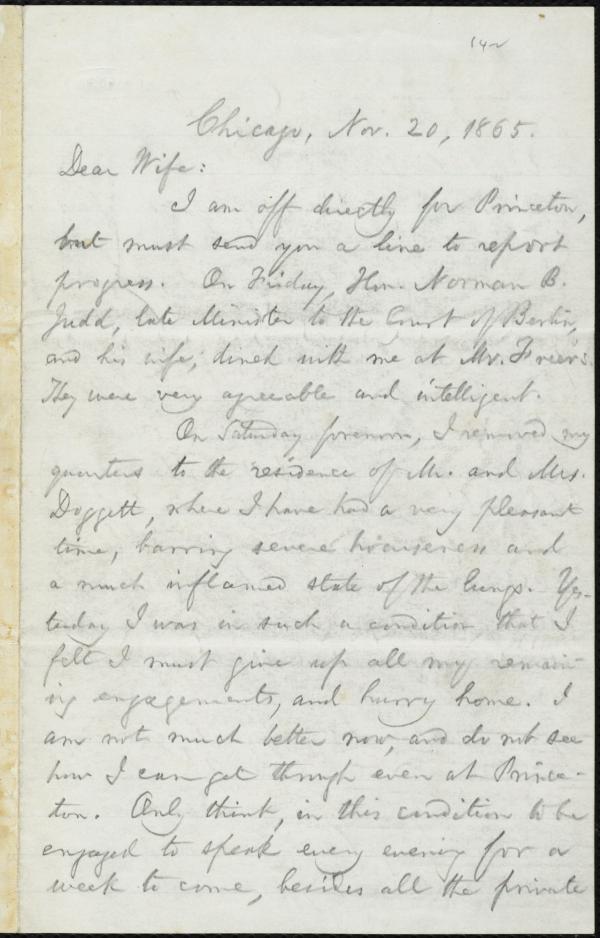 142
Chicago, Nov. 20, 1865.
Dear Wife:
I am off directly for Princeton,
but must send you a line to report
progress. On Friday, Hon. Norman B.
Judd, late Minister to the Court of Berlin,
and his wife, dined with me at Mr. Freer's.
They were very agreeable and intelligent.
On Saturday forenoon, I removed my
quarters to the residence of Mr. and Mrs.
Doggett, where I have had a very pleasant
time, barring severe hoarseness and
a much inflamed state of the lungs. Yes-
terday I was in such a condition that I
felt I must give up all my remain-
ing engagements, and hurry home. I
am not much better now, and do not see
how I can get through even at Prince-
ton. Only think, in this condition to be
engaged to speak every evening for a
week to come, besides all the private